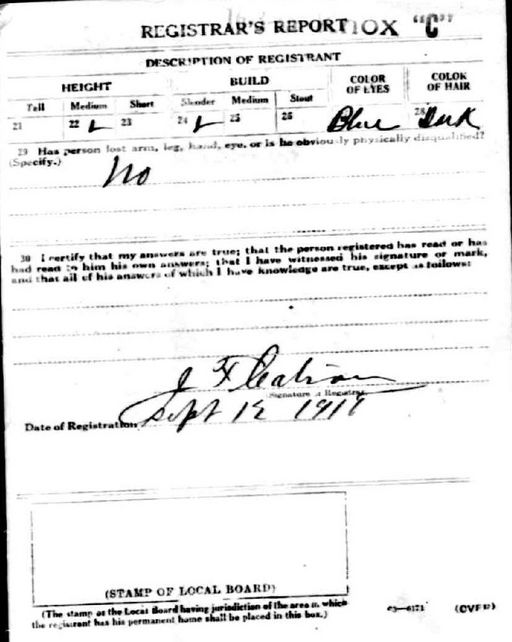 REGISTRAR'S REPORT
"C"
DESCRIPTION OF REGISTRANT
HEIGHT BUILD COLOR OF EYES COLOR OF HAIR
Tall Medium Short Slender Medium Stout
21 22 ✓ 23 24 ✓ 25 26 Blue 28 Dark
29 Has person lost arm, leg, hand, eye, or is he obviously physically disqualified?
(Specify.)
No
30 I certify that my answers are true; that the person registered has read or has
had read to him his own answers; that I have witnessed his signature or mark,
and that all of his answers of which I have knowledge are true, except as follows:
J F
Signature of Registrar
Date of Registration Sept 12
(STAMP OF LOCAL BOARD)
(The stamp of the Local Board having jurisdiction of the area in which
the registrant has his permanent home shall be placed in this box.)
03—6171 (OVER)